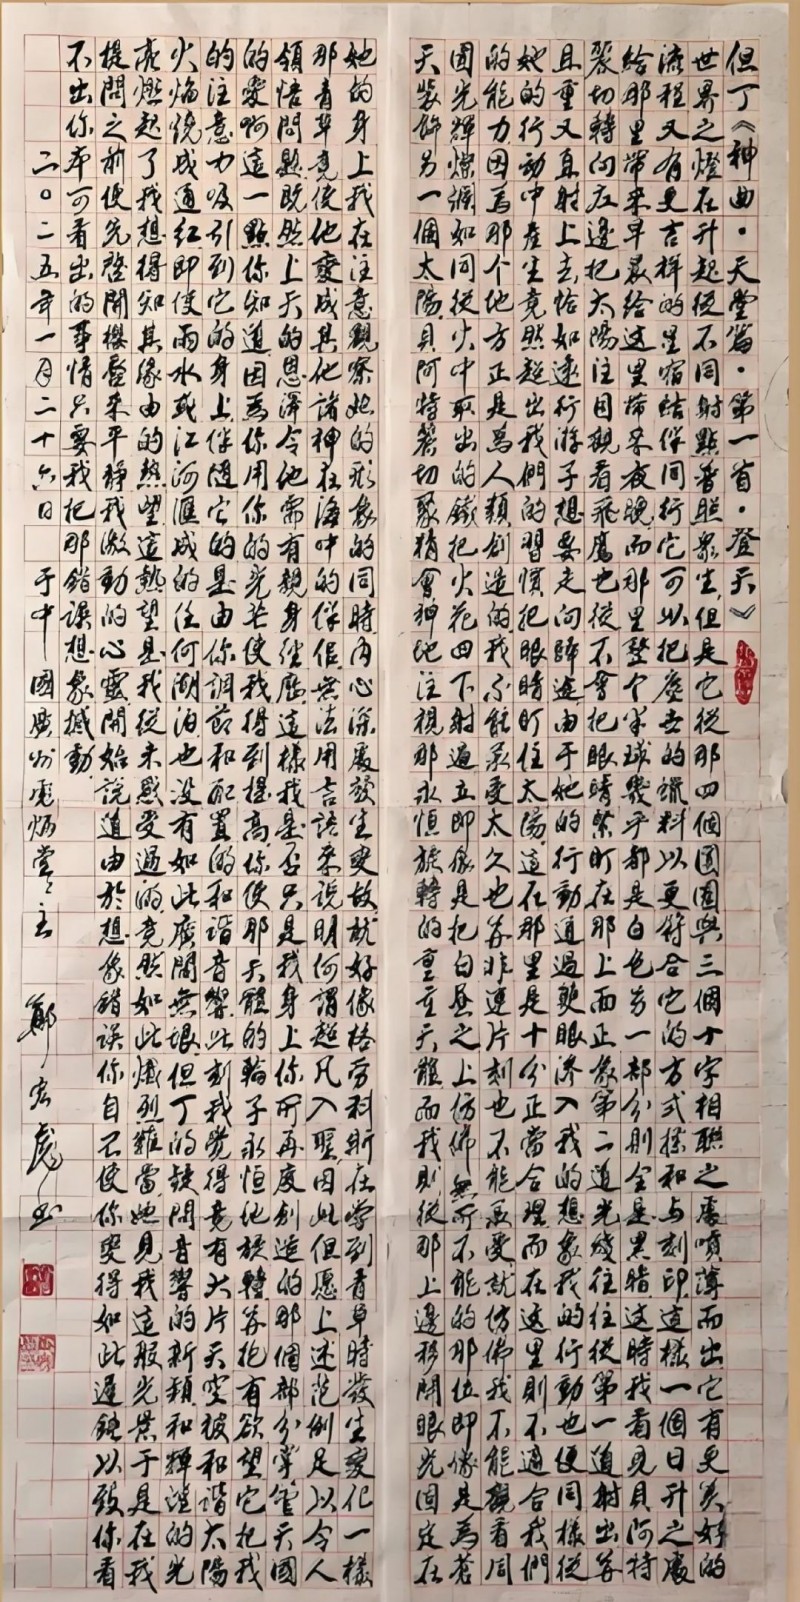 但丁《神曲·天堂篇·第一首·登天》
世界之燈在升起從不同射點普照衆生但是它從那四個圓圈與三個十字相聯之處噴薄而出它有更美好的
流程又有更吉祥的星宿結伴同行它可以把塵世的蠟料以更符合它的方式揉和与刻印這樣一個日升之處
給那里带来早晨给這里带来夜晚而那里整个半球幾乎都是白色另一部分則全是黑暗這時我看見貝阿特
麗切轉向左邊把太陽注目觀看飛鷹也從不曾把眼睛緊盯在那上面正象第二道光綫往往從第一道射出并
且重又直射上去恰如遠行游子想要走向歸途由于她的行動通過雙眼濟入我的想象我的行動也便同樣從
她的行動中産生竟然超出我們的習慣把眼睛盯住太陽這在那里是十分正當合理而在這里則不適合我們
的能力因為那个地方正是為人類創造的我不能承受太久也并非連片刻也不能承受就仿佛我不能觀看周
圍光輝燦爛如同從火中取出的鐵把火花四下射遍立即像是把白昼之上仿佛無所不能的那位即像是為蒼
天装飾另一個太陽貝阿特麗切聚精會神地注視那永恒旋轉的重重天體而我則從那上邊移開眼光固定在
她的身上我在注意觀察她的形象的同時内心深處發生變故就好像格勞科斯在嘗到青草時發生變化一樣
那青草竟使他變成其他諸神在海中的伴侣無法用言語来説明何謂超凡入聖因此但愿上述范例足以令人
領悟問題既然上天的恩澤令他需有親身經歷這樣我是否只是我身上你所再度創造的那個部分掌管天國
的愛啊這一點你知道因為你用你的光芒使我得到提高你使那天體的輪子永恒地旋轉并抱有欲望它把我
的注意力吸引到它的身上伴随它的是由你調節和配置的和諧音響此刻我覺得竟有大片天空被和諧太陽
火焰燒成通紅即使雨水或江河滙成的任何湖泊也没有如此廣闊無垠但丁的疑問音響的新穎和輝煌的光
亮燃起了我想得知其緣由的熱望這熱望是我從未感受過的竟然如此熾烈難當她見我這般光景于是在我
提問之前便先啓開櫻唇来平静我激動的心靈開始說道由於想像錯誤你自己使你變得如此遲鈍以致你看
不出你本可看出的事情只要我把那錯誤想象撼動
二〇二五年一月二十六日 于中國廣州彪炳堂之主 鄭宏彪书